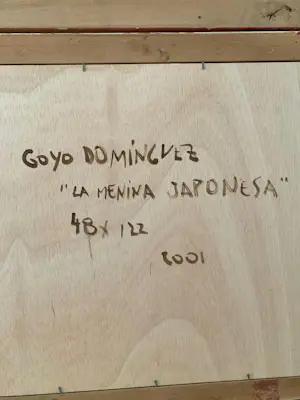 GOYO DOMÍNGUEZ
"LA MENINA JAPONESA"
48 x 122
2001